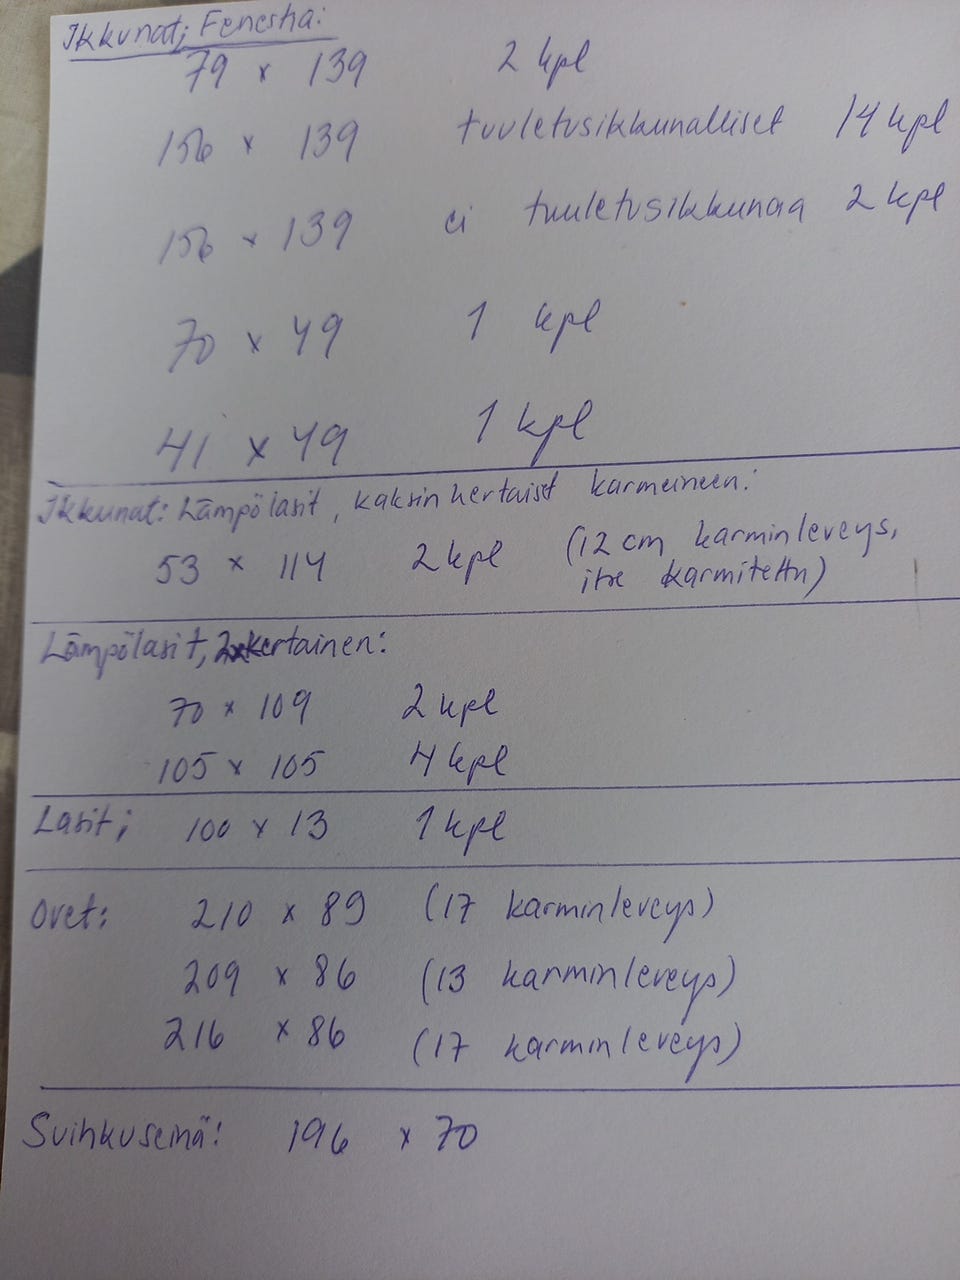 Ikkunat; Fenestra:
79 x 139 2 kpl
156 x 139 tuuletusikkunalliset 14 kpl
156 x 139 ei tuuletusikkunaa 2 kpl
70 x 49 1 kpl
41 x 49 1 kpl
Ikkunat: Lämpölasit, kaksinkertaiset karmeineen:
53 x 114 2 kpl (12 cm karminleveys,
itse karmitettu)
Lämpölasit, 2xkertainen:
70 x 109 2 kpl
105 x 105 4 kpl
Lasit; 100 x 13 1 kpl
Ovet: 210 x 89 (17 karminleveys)
209 x 86 (13 karminleveys)
216 x 86 (17 karminleveys)
Suihkuseinä: 196 x 70